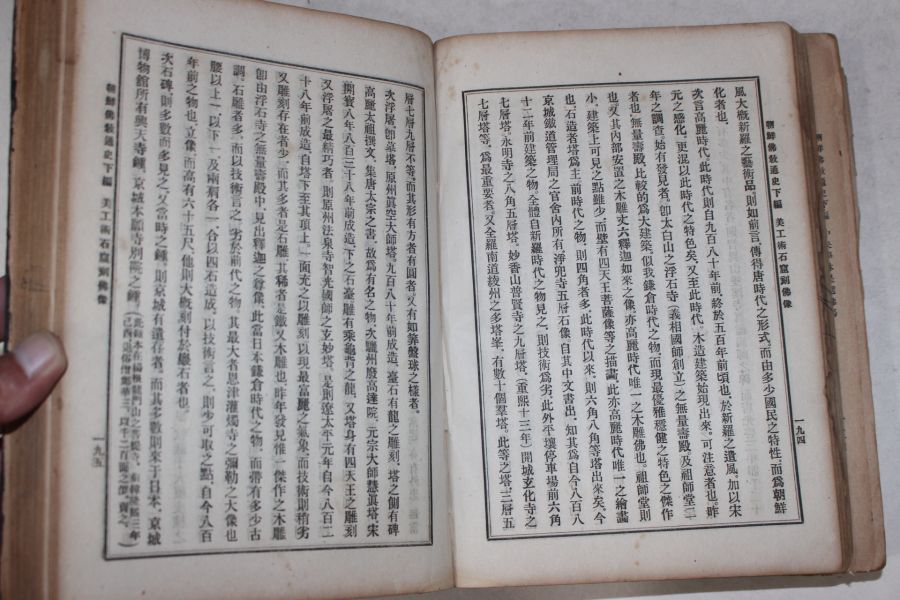 朝鮮佛教通史下編　美工術石窟刻佛像
一九四
風大槪新羅之藝術品。則如前言、傳得唐時代之形式。而由多少國民之特性。而爲朝鮮
化者也。
次言高麗時代。此時代則自九百八十年前、終於五百年前頃也。於新羅之遺風。加以宋
元之感化。更混以此時代之特色矣。又至此時代。木造建築始現出來。可注意者也。昨
年之調查。始有發見者。卽太白山之浮石寺(義相國師創立)之無量壽殿。及祖師堂二
者也。無量壽殿比較的爲大建築。似我鎌倉時代之物。而現最優雅穩健之特色之傑作
也。又其內部安置之木雕丈六釋迦如來之像。亦高麗時代唯一之木雕佛也。祖師堂則
小。建築上可見之點雖少。而壁有四天王菩薩像等之描畵。此亦高麗時代唯一之繪畵
也。石造者塔爲主。前時代之物。則四角者多。此時代以來。則六角八角等塔出來矣。今
京城鐵道管理局之官舍內所有淨兜寺五層石像。自其中文書出。知其爲自今八百八
十二年前建築之物。全體自新羅時代之物見之。則技術爲劣。此外平壤停車場前六角
七層塔。永明寺之八角五層塔。妙香山普賢寺之九層塔。(重熙十三年)開城玄化寺之
七層塔等。爲最重要者。又全羅南道綾州之多塔峯。有數十個羣塔。此等之塔三層五
層七層九層不等。而其形有方者有圓者。又有如筭盤珠之樣者。
次浮屠。卽墓塔。原州眞空大師塔。九百八十年前成造。臺石有龍之雕刻。塔之側有碑
高麗太祖撰文。集唐太宗之書。故爲有名之物。次驪州廢高達院。元宗大師慧眞塔。宋
開寶八年。八百三十八年前成造。下之石臺雕有乘龜背之龍。又塔身有四天王之雕刻
又浮屠之最精巧者。則原州法泉寺智光國師之玄妙塔。是則遼太平元年。自今八百二
十八年前成造。自塔下至其頂上。一面充之以雕刻。以現最富麗之氣象。而技術則稍劣
又雕刻存在者少。而其多者是石雕。其稀者是鐵。又木雕也。昨年發見惟一傑作之木雕
卽由浮石寺之無量壽殿中。見出釋迦之尊像。此當日本鎌倉時代之物。而帶有多少古
調。石雕者多。而以技術言之。劣於前代之物。其最大者恩津灌燭寺之彌勒之大像也
腰以上一。以下一及兩肩各一。合以四石造成。以技術言之。則少可取之點。自今八百
年前之物也。立像而高有六十五尺。他則大槪刻付於巖石者也。
次石碑。則多數而多見之。又當時之鐘。則京城有遺存者。而其多數則來于日本。京城
博物館所有興天寺鍾。京城本願寺別院之鍾。
朝鮮佛教通史下編　美工術石窟刻佛像
一九五